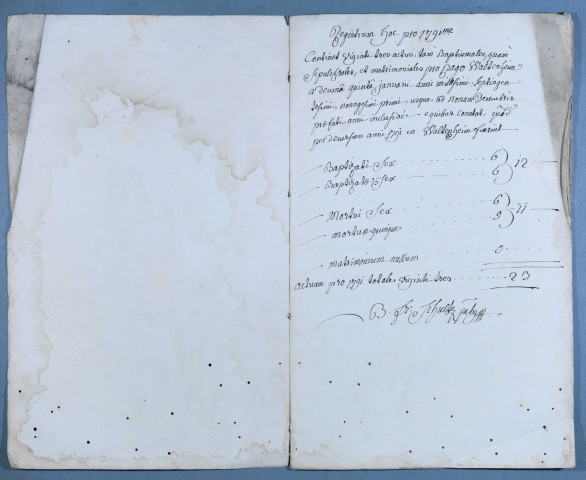 Registrum hoc pro 1791mo
Continet viginti tres actus, tam Baptismales, quam
sepulchrales, et matrimoniales pro pago Waltenheim
a decima quinta januarii anni millesimi, septingen
tesimi, nonagesimi primi, usque ad nonam Decembris
præfati anni inclusivè, equibus constat, quòd
per decursum anni 1791 in Waltenheim fuerint
Baptizati sex 6
Baptizatæ sex 6 12
Mortui sex 6
mortuæ quinque 5 11
matrimonium nullum 0
actuum pro 1791 totale viginti tres 23
Schultz